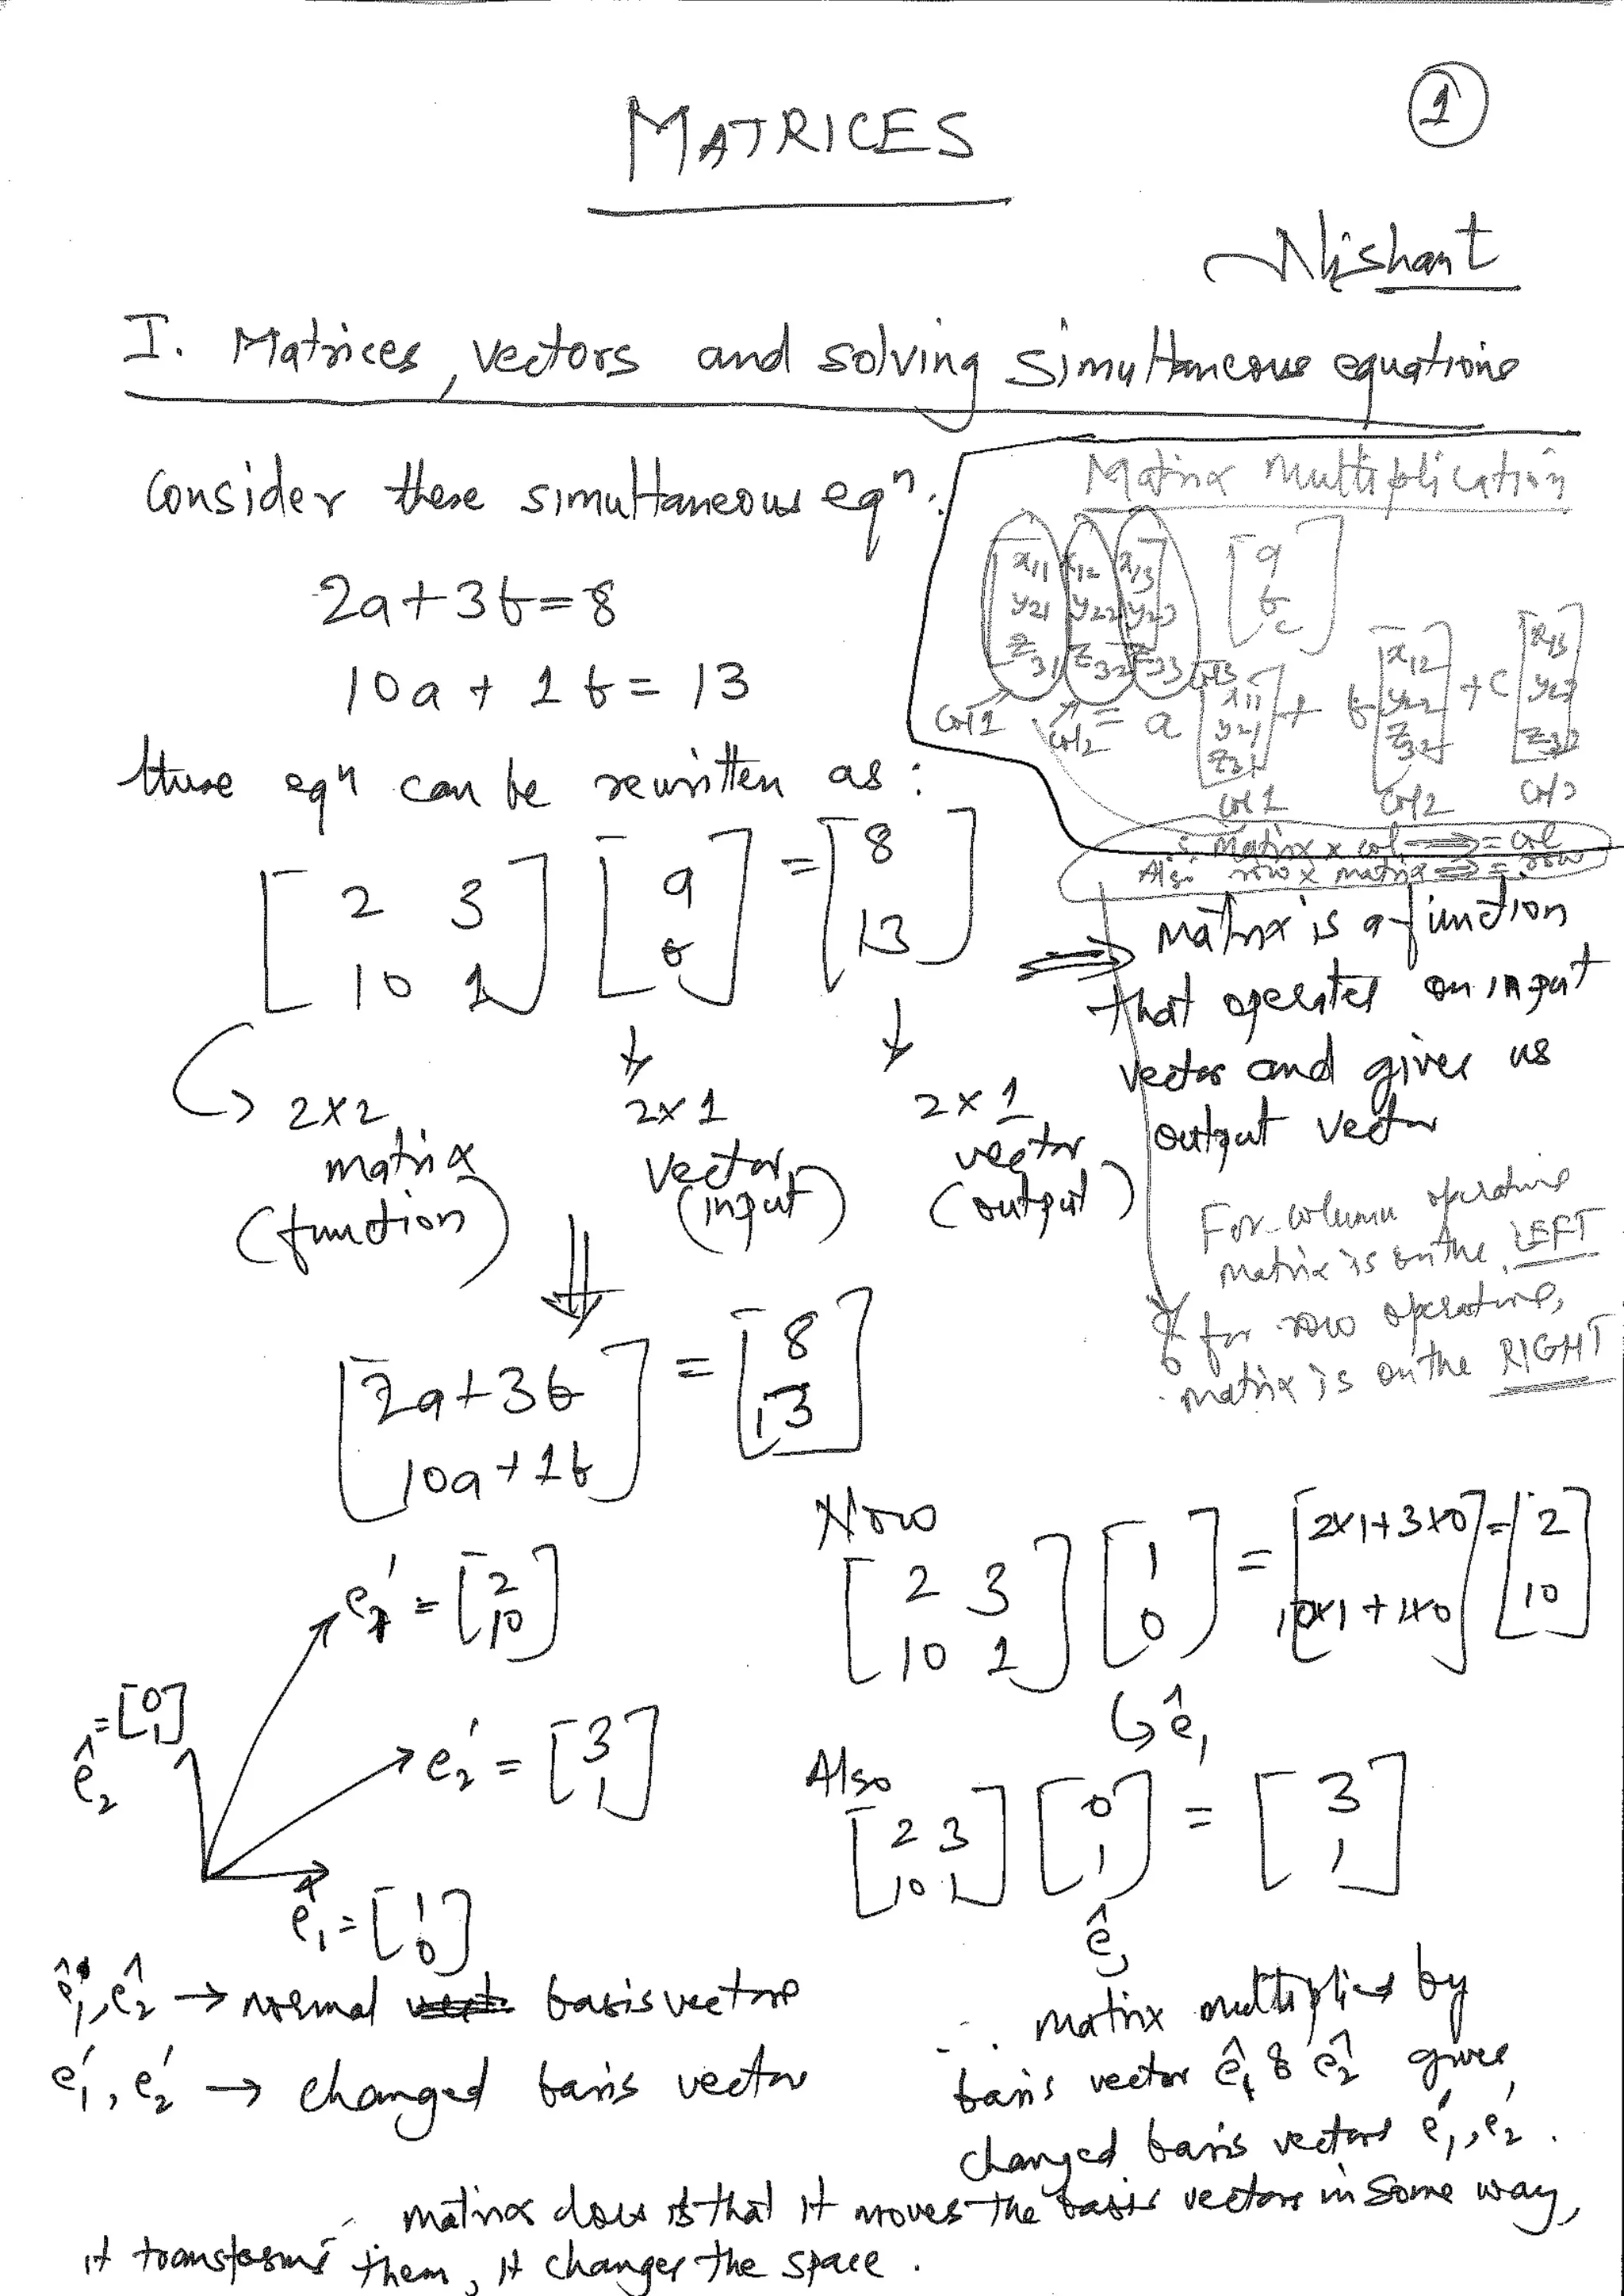 1
MATRICES
Nishant
I. Matrices, vectors and solving simultaneous equations
Consider these simultaneous eqn:
2a+3b=8
10a + 1b = 13
these eqn can be rewritten as:
[2 3
10 1] [a
b] = [8
13]
2x2
matrix
(function)
2x1
vector
(input)
2x1
vector
(output)
[2a+3b
10a+1b] = [8
13]
Matrix Multiplication
[x11 x12 x13
y21 y22 y23
z31 z32 z33] [a
b
c]
col1 col2 col3
= a [x11
y21
z31] + b [x12
y22
z32] + c [x13
y23
z33]
col1 col2 col3
∴ Matrix x col ⇒ = col
Also row x matrix ⇒ = row
⇒ Matrix is a function
that operates on input
vector and gives us
output vector
For column operations
matrix is on the LEFT
& for row operations,
matrix is on the RIGHT
Now
[2 3
10 1] [1
0] = [2x1+3x0
10x1+1x0] = [2
10]
ê1
Also
[2 3
10 1] [0
1] = [3
1]
ê
e1' = [2
10]
e2' = [3
1]
ê2 = [0
1]
ê1 = [1
0]
ê1, ê2 → normal basis vectors
e1', e2' → changed basis vector
∴ matrix multiplied by
basis vector ê1 & ê2 gives
changed basis vectors e1', e2'.
matrix does is that it moves the basis vectors in some way,
it transforms them, it changes the space.